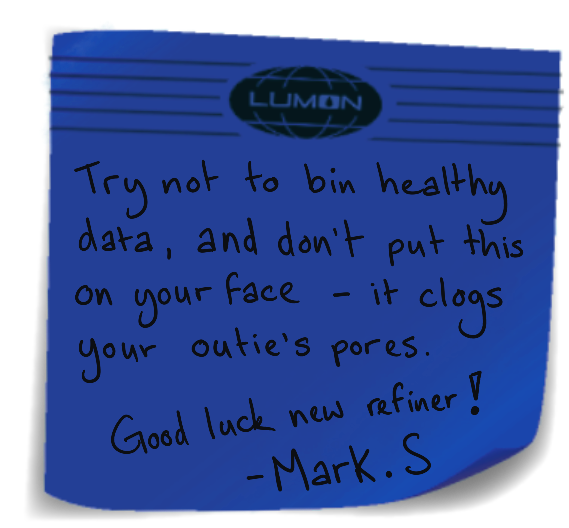 LUMON
Try not to bin healthy
data, and don't put this
on your face - it clogs
your outie's pores.
Good luck new refiner!
-Mark.S